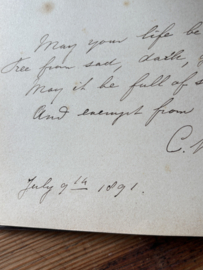 May your life be
Free from sad, dark,
May it be full of s
And exempt from
C.
July 9th 1891.